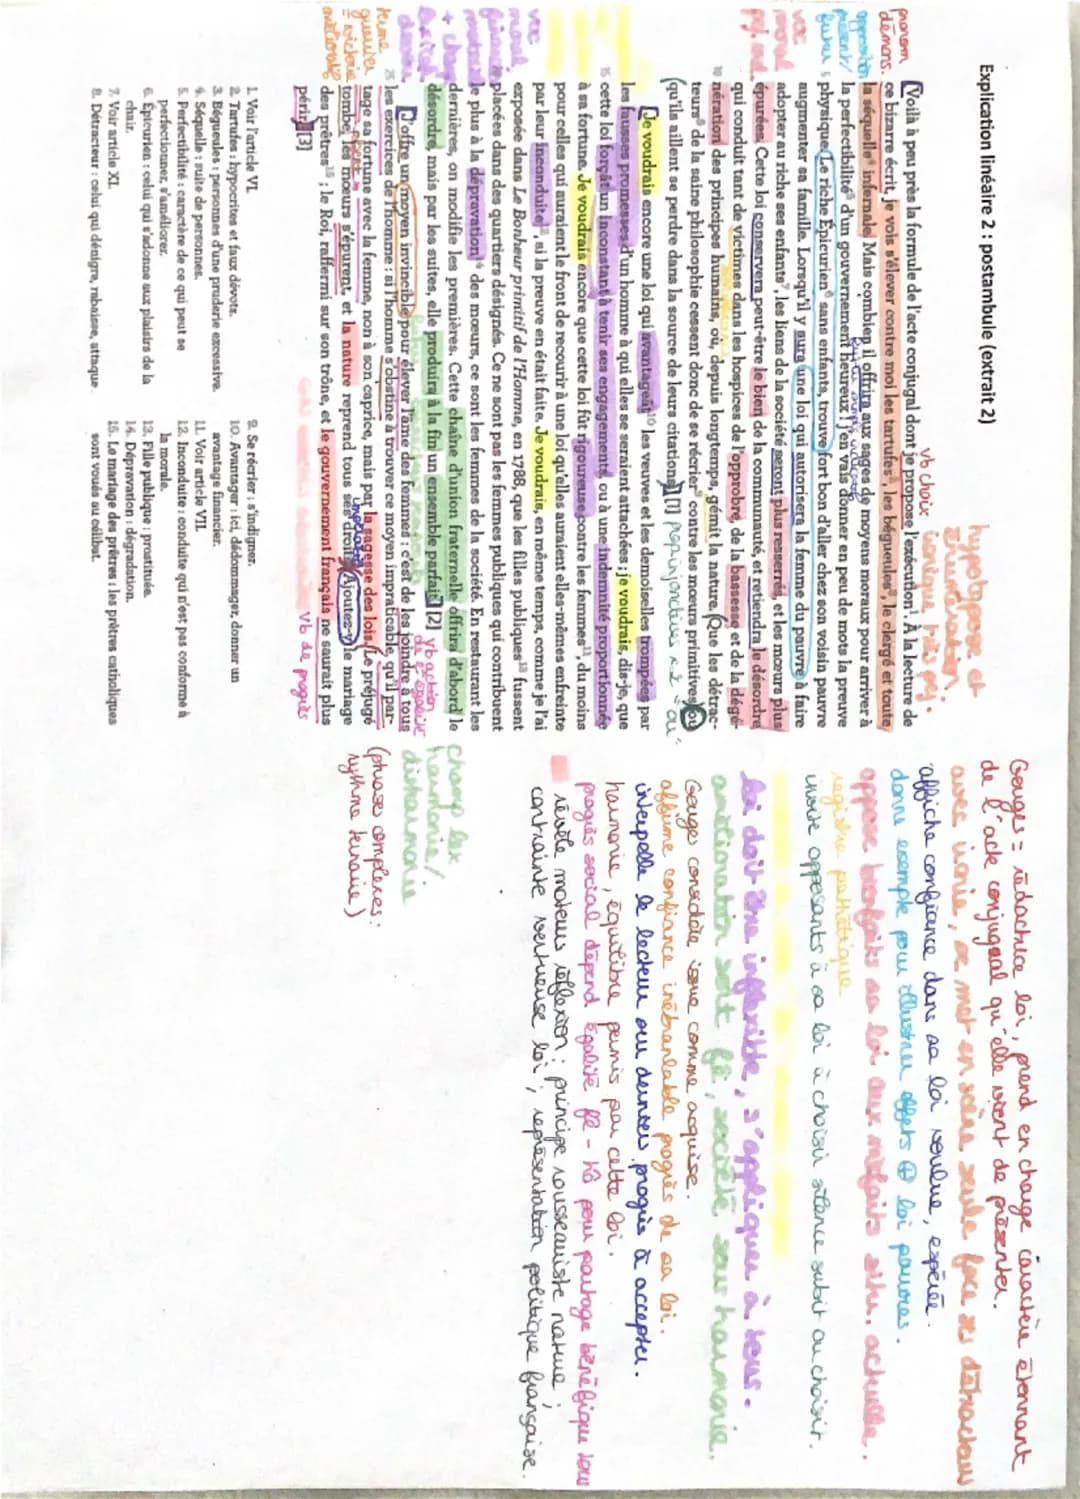 Explication linéaire 2 : postambule (extrait 2)
hypotypose et
énumération.
vb choix
pronom
démons.
opposition
présent/
futur
voc
moral
Voilà à peu près la formule de l'acte conjugal dont je propose l'exécution¹. À la lecture de
ce bizarre écrit, je vois s'élever contre moi les tartufes², les bégueules³, le clergé et toute
la séquelle⁴ infernale. Mais combien il offrira aux sages de moyens moraux pour arriver à
la perfectibilité⁵ d'un gouvernement heureux ! j'en vais donner en peu de mots la preuve
5 physique. Le riche Épicurien⁶ sans enfants, trouve fort bon d'aller chez son voisin pauvre
augmenter sa famille. Lorsqu'il y aura une loi qui autorisera la femme du pauvre à faire
adopter au riche ses enfants⁷, les liens de la société seront plus resserrés, et les mœurs plus
épurées. Cette loi conservera peut-être le bien de la communauté, et retiendra le désordre
qui conduit tant de victimes dans les hospices de l'opprobre, de la bassesse et de la dégé-
10 nération des principes humains, où, depuis longtemps, gémit la nature. Que les détrac-
teurs⁸ de la saine philosophie cessent donc de se récrier⁹ contre les mœurs primitives, ou
(qu'ils aillent se perdre dans la source de leurs citations.) [1]
Je voudrais encore une loi qui avantageât¹⁰ les veuves et les demoiselles trompées par
les fausses promesses d'un homme à qui elles se seraient attachées ; je voudrais, dis-je, que
15 cette loi forçât un inconstant à tenir ses engagements, ou à une indemnité proportionnée
à sa fortune. Je voudrais encore que cette loi fût rigoureuse contre les femmes¹¹, du moins
pour celles qui auraient le front de recourir à une loi qu'elles auraient elles-mêmes enfreinte
par leur inconduite¹², si la preuve en était faite. Je voudrais, en même temps, comme je l'ai
exposée dans Le Bonheur primitif de l'Homme, en 1788, que les filles publiques¹³ fussent
placées dans des quartiers désignés. Ce ne sont pas les femmes publiques qui contribuent
le plus à la dépravation¹⁴ des mœurs, ce sont les femmes de la société. En restaurant les
dernières, on modifie les premières. Cette chaîne d'union fraternelle offrira d'abord le
désordre, mais par les suites, elle produira à la fin un ensemble parfait. [2]
vb action
J'offre un moyen invincible pour élever l'âme des femmes ; c'est de les joindre à tous
25 les exercices de l'homme : si l'homme s'obstine à trouver ce moyen impraticable, qu'il par-
tage sa fortune avec la femme, non à son caprice, mais par la sagesse des lois. Le préjugé
tombe, les mœurs s'épurent, et la nature reprend tous ses droits. Ajoutez-y le mariage
des prêtres¹⁵ ; le Roi, raffermi sur son trône, et le gouvernement français ne saurait plus
périr. [3]
vb de progrès
1. Voir l'article VI.
2. Tartufes : hypocrites et faux dévots.
3. Bégueules : personnes d'une pruderie excessive.
4. Séquelle : suite de personnes.
5. Perfectibilité : caractère de ce qui peut se
perfectionner, s'améliorer.
6. Épicurien : celui qui s'adonne aux plaisirs de la
chair.
7. Voir article XI.
8. Détracteur : celui qui dénigre, rabaisse, attaque.
9. Se récrier : s'indigner.
10. Avantager : ici, dédommager, donner un
avantage financier.
11. Voir article VII.
12. Inconduite : conduite qui n'est pas conforme à
la morale.
13. Fille publique : prostituée.
14. Dépravation : dégradation.
15. Le mariage des prêtres : les prêtres catholiques
sont voués au célibat.
Gouges = rédactrice loi, prend en charge caractère étonnant
de l'acte conjugal qu'elle vient de présenter.
avec ironie, se met en scène seule face ses détracteurs
affiche confiance dans sa loi voulue, espérée.
donne exemple pour illustrer effets ⊕ loi pauvres.
oppose bienfaits sa loi aux méfaits situ. actuelle.
registre pathétique
invite opposants à sa loi à choisir silence subit ou choisir.
loi doit être inflexible, s'appliquer à tous.
amélioration sort fê, société sous harmonie.
Gouges considère issue comme acquise.
affirme confiance inébranlable progrès de sa loi.
interpelle le lecteur au dernier progrès à accepter.
harmonie, équilibre permis par cette loi.
progrès social dépend égalité fê - hô pour partage bénéfique
révèle moteurs réflexion : principe rousseauiste nature ;
contrainte vertueuse loi ; représentation politique française.
champ lex
harmonie/.
disharmonie
(phrases complexes :
rythme ternaire)